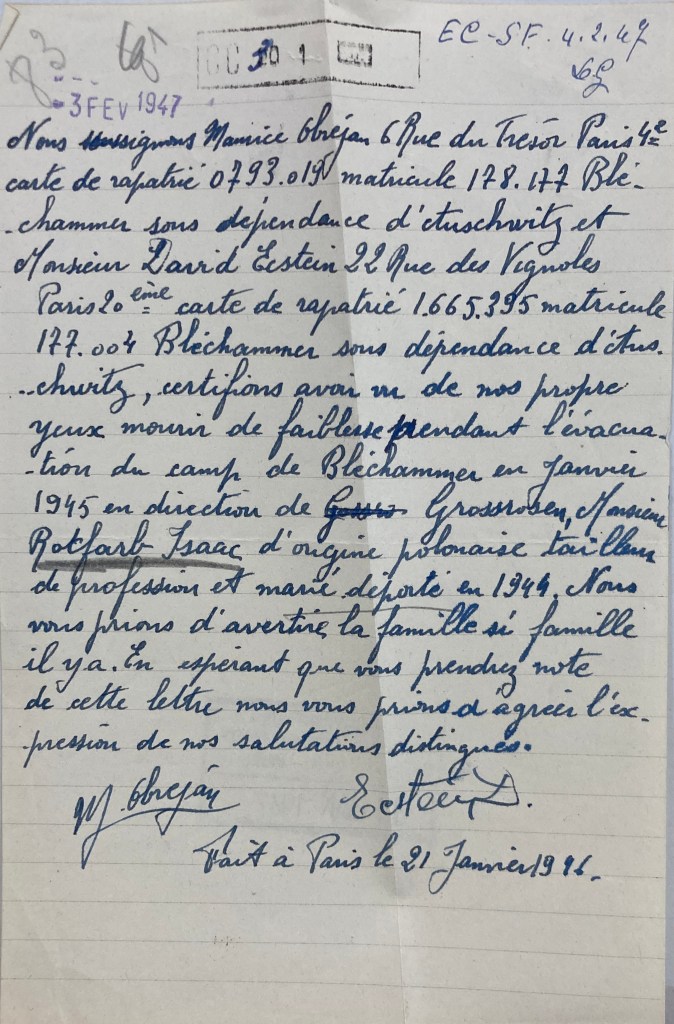 EC-SF. 4.2.47
- 3 FEV 1947
Nous soussignons Maurice Obréjan 6 Rue du Tresor Paris 4e
carte de rapatrié 0793.019 matricule 178.177 Blé-
-chammer sous dépendance d'Auschwitz et
Monsieur David Ecstein 22 Rue des Vignoles
Paris 20 ème carte de rapatrié 1.665.395 matricule
177.004 Bléchammer sous dépendance d'Aus-
-chwitz, certifions avoir vu de nos propre
yeux mourir de faiblesse pendant l'évacua-
-tion du camp de Bléchammer en Janvier
1945 en direction de Grossrosen, Monsieur
Rotfarb Isaac d'origine polonaise tailleur
de profession et marié déporté en 1944. Nous
vous prions d'avertire la famille si famille
il y a. En espérant que vous prendrez note
de cette lettre nous vous prions d'agréer l'ex-
-pression de nos salutations distingués.
M. Obreján Ecstein D.
Fait à Paris le 21 Janvier 1946.